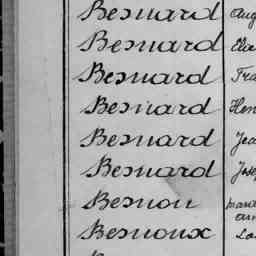 Besnard
Besnard
Besnard Fra
Besnard Hen
Besnard Jea
Besnard Jose
Besnou
Besnoux